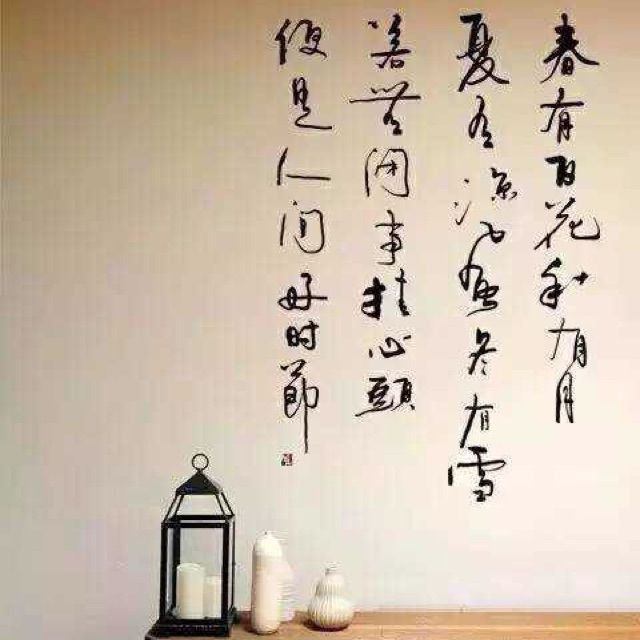 春有百花秋有月
夏有涼風冬有雪
若無闲事挂心頭
便是人间好时節